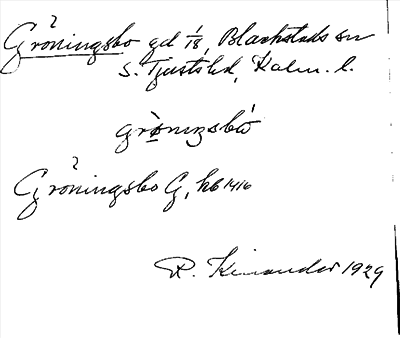 Gröningsbo gd 1/8, Blackstads sn
S. Tjusts hd, Kalm. l.
grö̀niŋsbó
Gröningsbo G, hb 1416
R. Kinander 1929